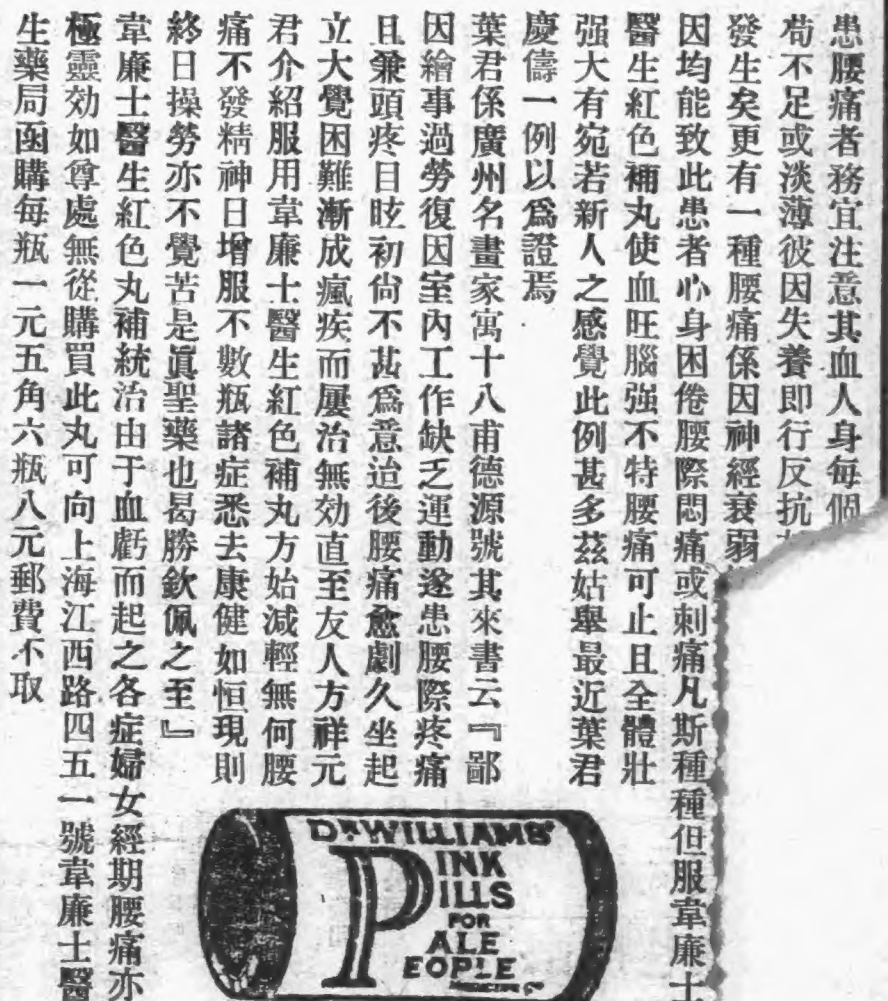 患腰痛者務宜注意其血人身每個
苟不足或淡薄彼因失養即行反抗
發生矣更有一種腰痛係因神經衰弱
因均能致此患者心身困倦腰際悶痛或刺痛凡斯種種但服韋廉士
醫生紅色補丸使血旺腦强不特腰痛可止且全體壯
强大有宛若新人之感覺此例甚多茲姑舉最近葉君
慶儔一例以爲證焉
葉君係廣州名畫家寓十八甫德源號其來書云『鄙
因繪事過勞復因室內工作缺乏運動遂患腰際疼痛
且兼頭疼目眩初尙不甚爲意迨後腰痛愈劇久坐起
立大覺困難漸成瘋疾而屢治無効直至友人方祥元
君介紹服用韋廉士醫生紅色補丸方始減輕無何腰
痛不發精神日增服不數瓶諸症悉去康健如恒現則
終日操勞亦不覺苦是眞聖藥也曷勝欽佩之至』
韋廉士醫生紅色丸補統治由于血虧而起之各症婦女經期腰痛亦
極靈効如尊處無從購買此丸可向上海江西路四五一號韋廉士醫
生藥局函購每瓶一元五角六瓶八元郵費不取
DR WILLIAMS'
PINK
PILLS
FOR
PALE
PEOPLE